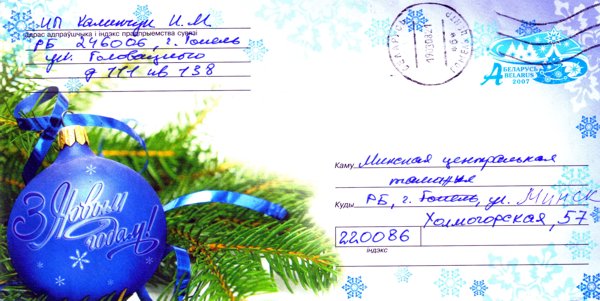 ИП Калинчук И. М
Адрас адпраўшчыка і індэкс прадпрыемства сувязі
РБ 246006, г. Гомель
ул. Головацкого
д 111 кв 138
БЕЛАРУСЬ
BELARUS
2007
A
З Новым годам!
Каму Минская центральная
таможня
Куды РБ, г. Гомель, ул. МИНСК
Холмогорская, 57
220086
індэкс